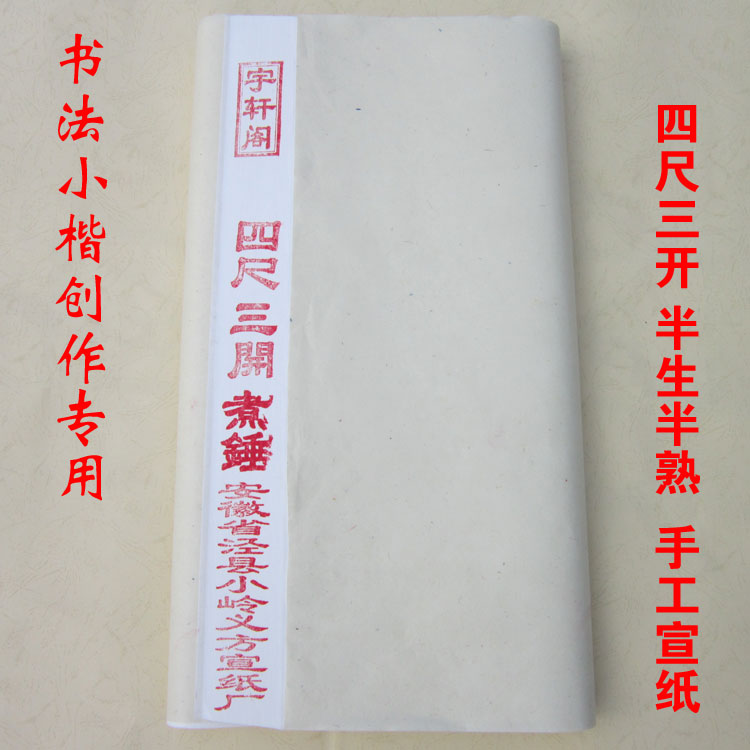 书法小楷创作专用
宇轩阁
四尺三開
煮錘
安徽省泾县小岭义方宣纸厂
四尺三开 半生半熟 手工宣纸